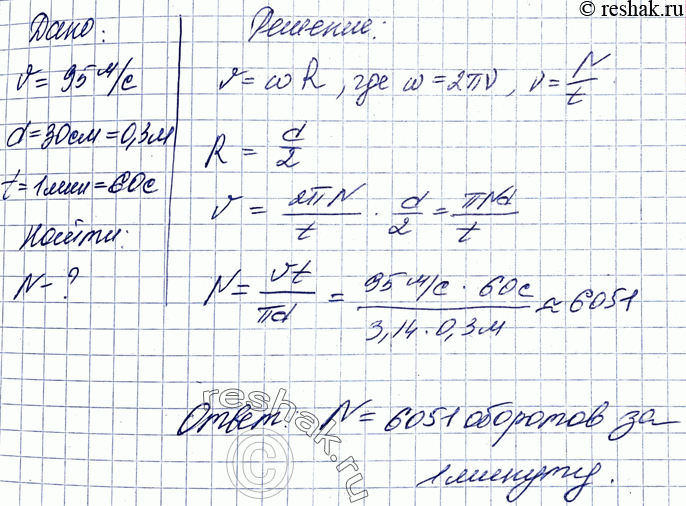 © reshak.ru
Дано:
v = 95 м/с
d = 30 см = 0,3 м
t = 1 мин = 60 с
Найти:
N - ?
Решение:
v = ωR, где ω = 2πν, ν = N/t
R = d/2
v = 2πN/t · d/2 = πNd/t
N = vt/πd = 95 м/с · 60 с / 3,14 · 0,3 м ≈ 6051
Ответ: N = 6051 оборотов за
1 минуту.
© reshak.ru